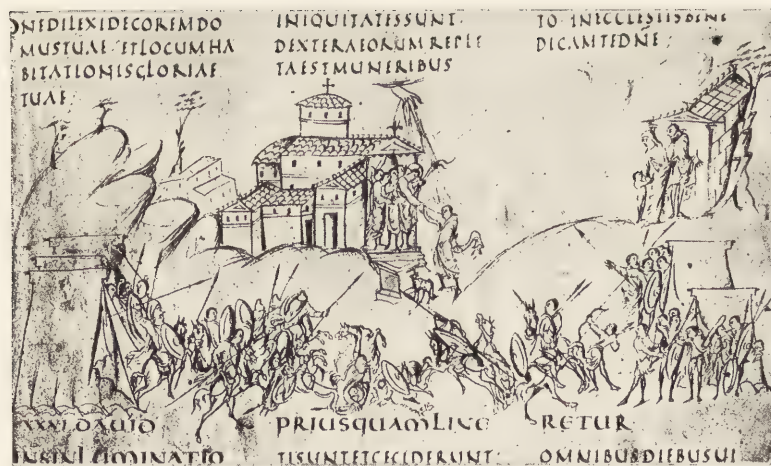 DNEDILEXIDECOREMDO
MUSTUAE ETLOCUMHA
BITATIONISGLORIAE
TUAE:
INIQUITATESSUNT·
DEXTERAEORUMREPLE
TAESTMUNERIBUS
TO INECCLESIISBENE
DICAMTEDNE;
XXVI DAUID
PRIUSQUAMLINE
RETUR
TISUNTETCECIDERUNT:
OMNIBUSDIEBUSUI